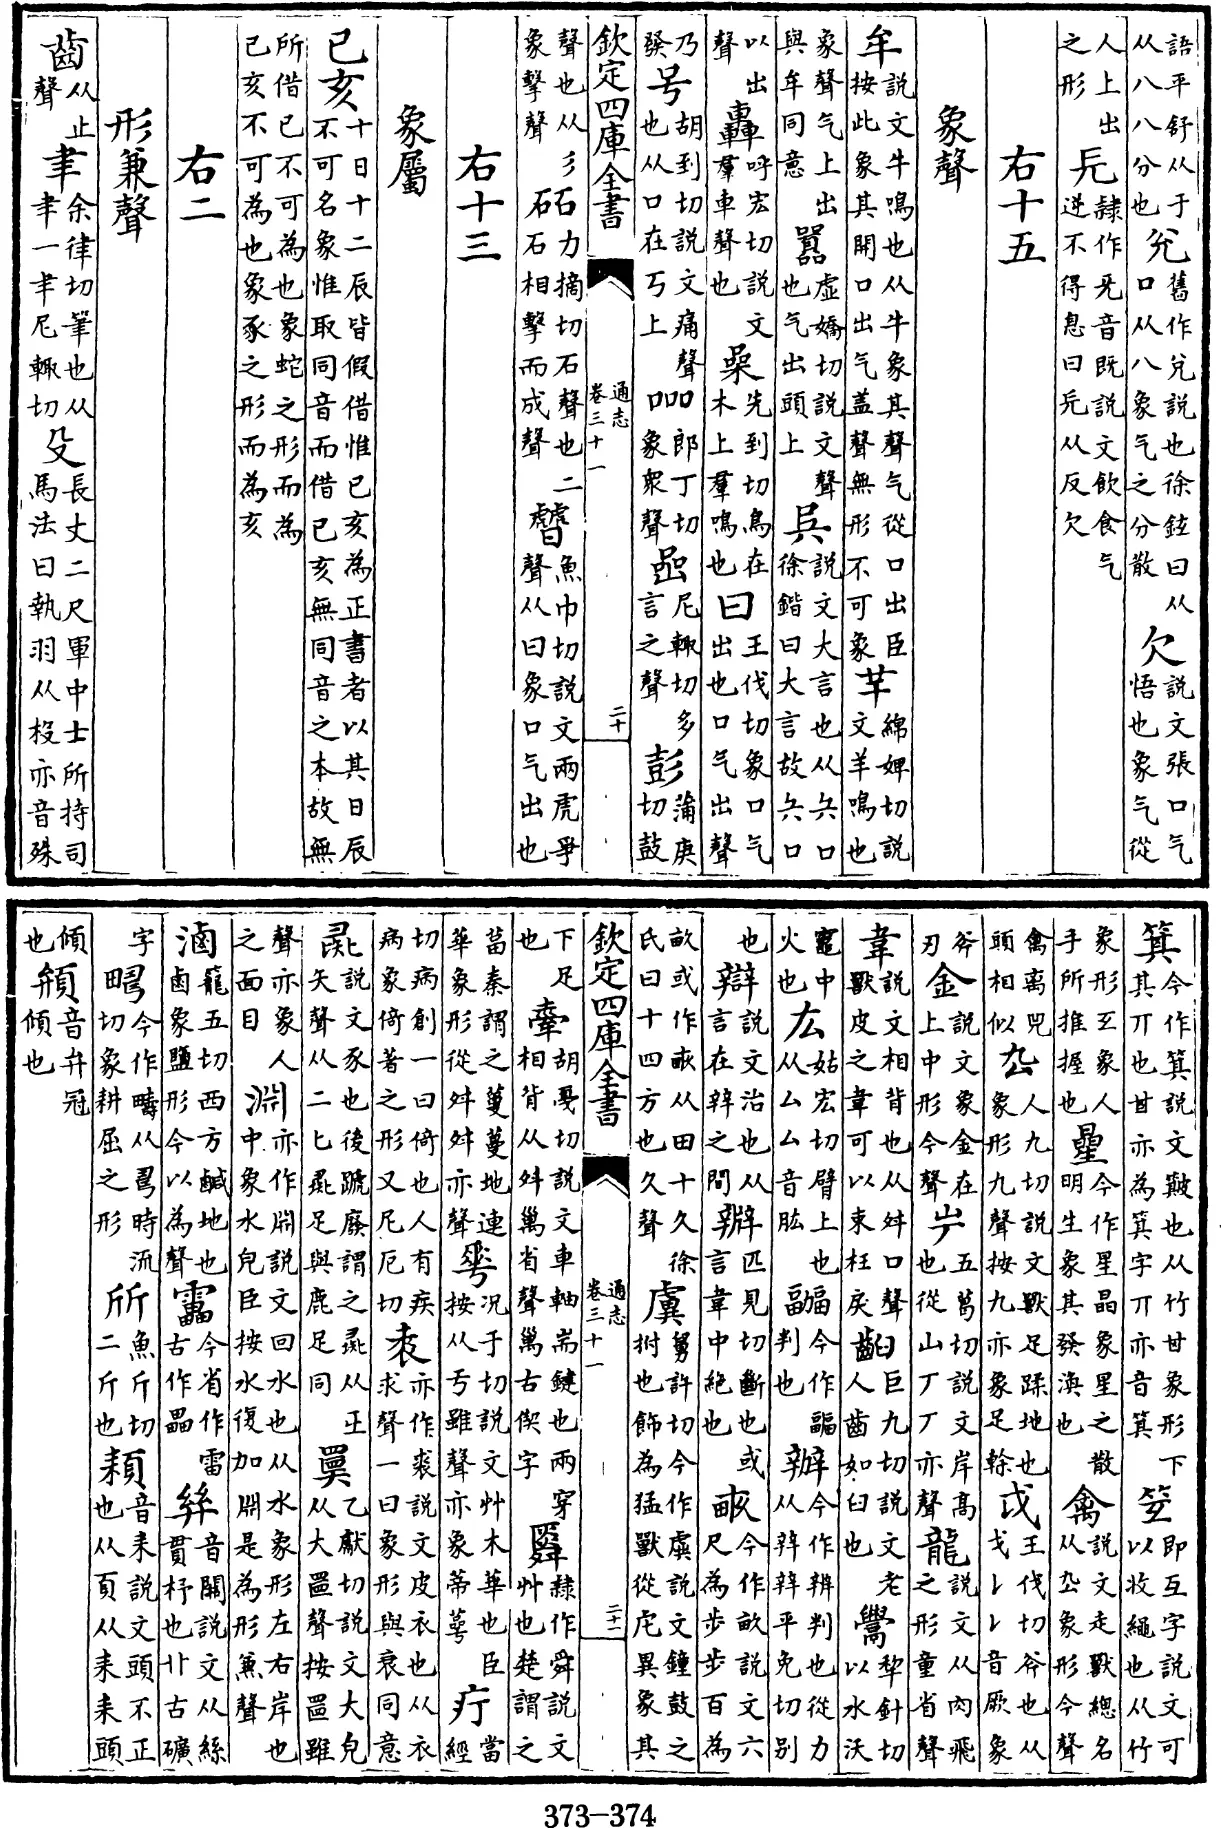 語平舒从于从八八分也兊舊作兌說也徐鉉曰从口从八象气之分散欠說文張口气悟也象气從
人上出之形旡隸作旡音既說文飲食气逆不得息曰旡从反欠
右十五
象聲
牟說文牛鳴也从牛象其聲气從口出臣按此象其開口出气盖聲無形不可象芈綿婢切說文羊鳴也
象聲气上出與牟同意囂虛嬌切說文聲也气出頭上吳說文大言也从夨口徐鍇曰大言故夨口
以出聲轟呼宏切說文羣車聲也喿先到切鳥在木上羣鳴也曰王伐切象口气出也口气出聲
乃發号胡到切說文痛聲也从口在丂上𠱠郎丁切象衆聲嵒尼輒切多言之聲彭蒲庚切鼓
欽定四庫全書 通志卷三十一 二十
聲也从彡象擊聲砳力摘切石聲也二石相擊而成聲魚巾切說文兩虎爭聲从曰象口气出也
右十三
象屬
已亥十日十二辰皆假借惟已亥為正書者以其日辰不可名象惟取同音而借已亥無同音之本故無
所借已不可為也象蛇之形而為已亥不可為也象豕之形而為亥
右二
形兼聲
齒从止聲聿余律切筆也从聿一聿尼輒切殳長丈二尺軍中士所持司馬法曰執羽从杸亦音殊
箕今作箕說文簸也从竹甘象形下其丌也甘亦為箕字丌亦音箕即互字說文可以收繩也从竹
象形互象人手所推握也曐今作星晶象星之散明生象其發渙也禽說文走獸總名从厹象形今聲
禽离兕頭相似厹人九切說文獸足蹂地也象形九聲按九亦象足戉王伐切斧也从戈𠄌𠄌音厥象
斧刃金說文象金在上中形今聲屵五葛切說文岸高也從山厂厂亦聲龍說文从肉飛之形童省聲
韋說文相背也从舛口聲獸皮之韋可以束枉戾齨巨九切說文老人齒如臼也犁針切以水沃
竈中火也厷姑宏切臂上也从厶厶音肱今作副判也辦今作辨判也從力从辡辡平免切別
也辯說文治也从言在辡之間辧匹見切斷也或言韋中絶也今作畝說文六尺為步步百為
畝或作畝从田十久徐氏曰十四方也久聲虞舅許切今作虡說文鐘鼓之拊也飾為猛獸從虍異象其
欽定四庫全書 通志卷三十一 二十一
下足也舝胡戞切說文車軸耑鍵也兩穿相背从舛省聲萬古偰字舜隸作舜說文艸也楚謂之
葍秦謂之蔓蔓地連華象形從舛舛亦聲𠌶况于切說文艸木華也臣按从亏雖聲亦象蒂萼疔當經
切病創一曰倚也人有疾病象倚著之形又尼厄切亦作裘說文皮衣也从衣求聲一曰象形與衰同意
彘說文豕也後蹏廢謂之彘从彑矢聲从二匕彘足與鹿足同乙獻切說文大皃从大𥁕聲按𥁕雖
聲亦象人之面目淵亦作𣶒說文回水也从水象形左右岸也中象水皃臣按水復加𣶒是為形兼聲
滷籠五切西方鹹地也鹵象鹽形今以為聲靁今省作雷古作畾𢇇音關說文从絲貫杼也丱古礦
字今作疇从𠷎時流切象耕屈之形斦魚斤切二斤也頛音耒說文頭不正也从頁从耒耒頭
傾也頩音幷冠傾也
373-374